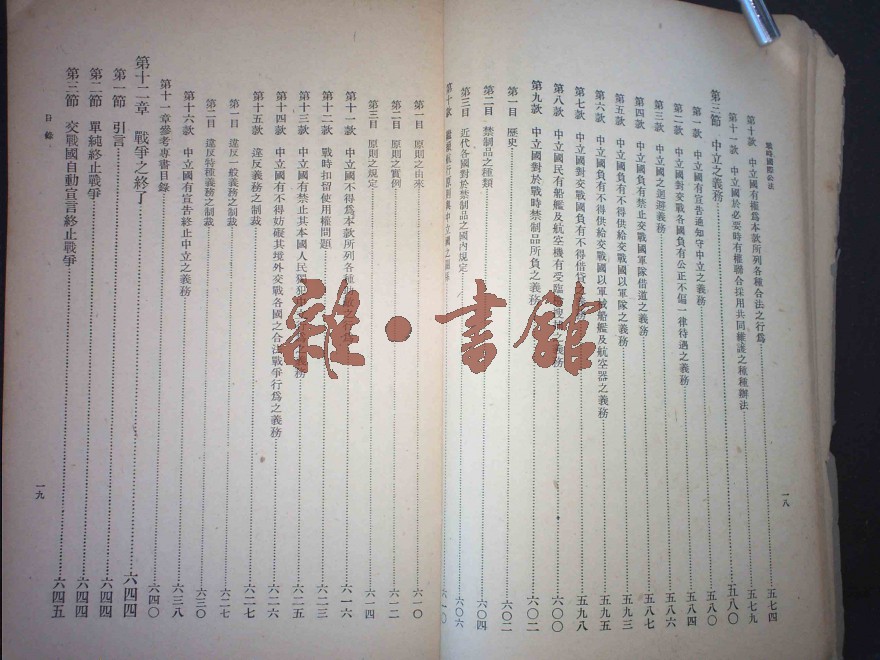 戰時國際公法
第十款 中立國有權爲本款所列各種合法之行爲 五七四
第十一款 中立國於必要時有權聯合採用共同維護之種種辦法 五七九
第三節 中立之義務 五八〇
第一款 中立國有宣告通知守中立之義務 五八〇
第二款 中立國對交戰各國負有公正不偏一律待遇之義務 五八四
第三款 中立國之迴避義務 五八六
第四款 中立國負有禁止交戰國軍隊借道之義務 五八七
第五款 中立國負有不得供給交戰國以軍隊之義務 五九三
第六款 中立國負有不得供給交戰國以軍械船艦及航空器之義務 五九五
第七款 中立國對交戰國負有不得借貸之義務 五九八
第八款 中立國民有船艦及航空機有受臨檢搜索之義務 六〇〇
第九款 中立國對於戰時禁制品所負之義務 六〇二
第一目 歷史 六〇二
第二目 禁制品之種類 六〇四
第三目 近代各國對於禁制品之國內規定 六〇六
第十款 六一〇
一八
第一目 原則之由來 六一〇
第二目 原則之實例 六一二
第三目 原則之規定 六一四
第十一款 中立國不得爲本款所列各種 六一六
第十二款 戰時扣留使用權問題 六二三
第十三款 中立國有禁止其本國人民 義務 六二五
第十四款 中立國有不得妨礙其境外交戰各國之合法戰爭行爲之義務 六二六
第十五款 違反義務之制裁 六二七
第一目 違反一般義務之制裁 六二七
第二目 違反特種義務之制裁 六三〇
第十六款 中立國有宣告終止中立之義務 六三八
第十一章參考專書目錄 六四〇
第十二章 戰爭之終了 六四四
第一節 引言 六四四
第二節 單純終止戰爭 六四四
第三節 交戰國自動宣言終止戰爭 六四五
目錄
一九
雜·書館